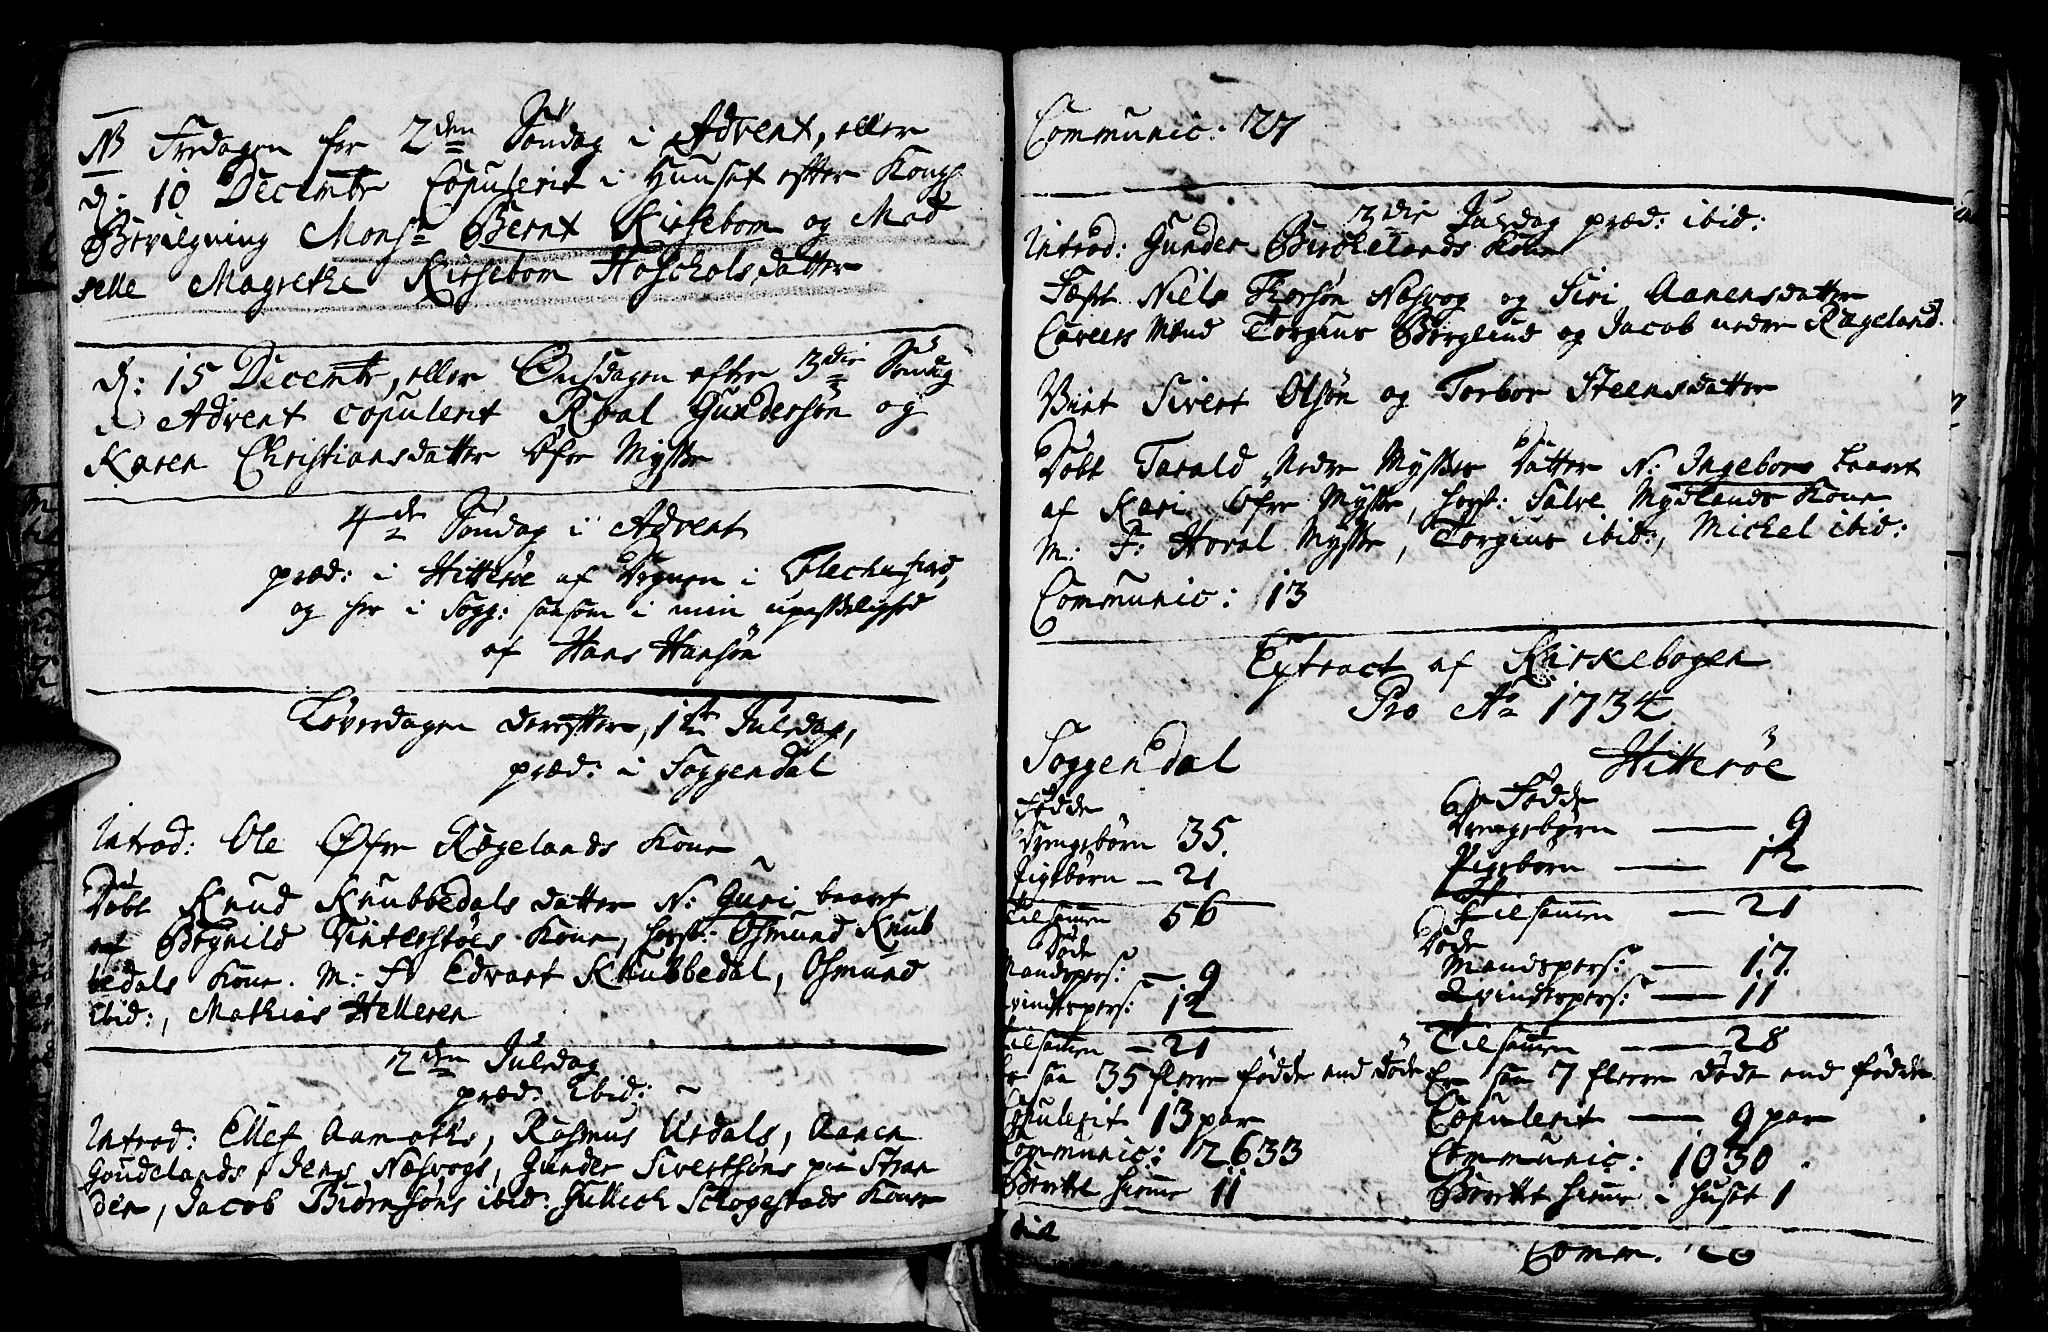 NB Fredagen før 2den Søndag i Advent, eller
d: 10 Decembr Copulerit i Huuset efter Kongl
Bevilgning Monsr Bernt Kirsebom og Mad
selle Magrethe Kirsebom Hoscholsdatter
d: 15 Decembr, eller Onsdagen efter 3die Søndag
i Advent copulerit Roal Gundersøn og
Karen Christiansdatter Øfre Mysse
4de Søndag i Advent
præd: i Hitterøe af Degnen i Flechefiord,
og her i Sogg: saasom i min upasselighed
af Hans Hansøn
Løverdagen derefter, 1te Juledag,
præd: i Soggendal
Introd: Ole Øfre Rægelands Kone
Døbt Knud Knubbedals datter N: Guri baaret
af Bognild Vinterstøes Kone, hosst: Osmund Knub
bedals Kone. M: F: Edvart Knubbedal, Osmund
ibid:, Mathias Helleren
2den Juledag
præd: Ibid:
Introd: Ellef Aamoths, Rasmus Urdals, Aanen
Goudelands, Jens Næsvogs, Gunder Sivertsøns paa Stran
den, Jacob Biørnsøns ibid: Gullich Schogestads Koner
Communic: 27
3die Juledag præd: ibid:
Introd: Gunder Birchelands Kone
Fæst Niels Thorsøn Nasvog og Siri Aanensdatter
Caveers Mænd Torgius Børglund og Jacob nedre Rægeland.
Viet Sivert Olsøn og Torbor Steensdatter
Døbt Tarald Nedre Mysses Datter N: Ingebor baaret
af Kari Øfre Mysse, hosst: Salve Mydlands Kone
M: F: Hoval Mysse, Torgius ibid:, Michel ibid:
Communic: 13
Extract af Kirkebogen
Pro Ao 1734
Soggendal
Fødde
Drengebørn 35.
Pigebørn - 21
Tilsamen 56
Døde
Mandspers: - 9
Qvindespers: 12
Tilsamen - 21
Er saa 35 flere fødde end døde
Copulerit 13 par
Communic: 2633
Berettet hiemme 11
Hitterøe
Fødde
Drengebørn — 9
Pigebørn — 12
Tilsamen — 21
Døde
Mandspers: — 17.
Qvindespers: — 11
Tilsamen — 28
Er saa 7 flere døde end fødde.
Copulerit — 9 par
Communic: 1030.
Berettet hieme i huset 1
Comm. 20